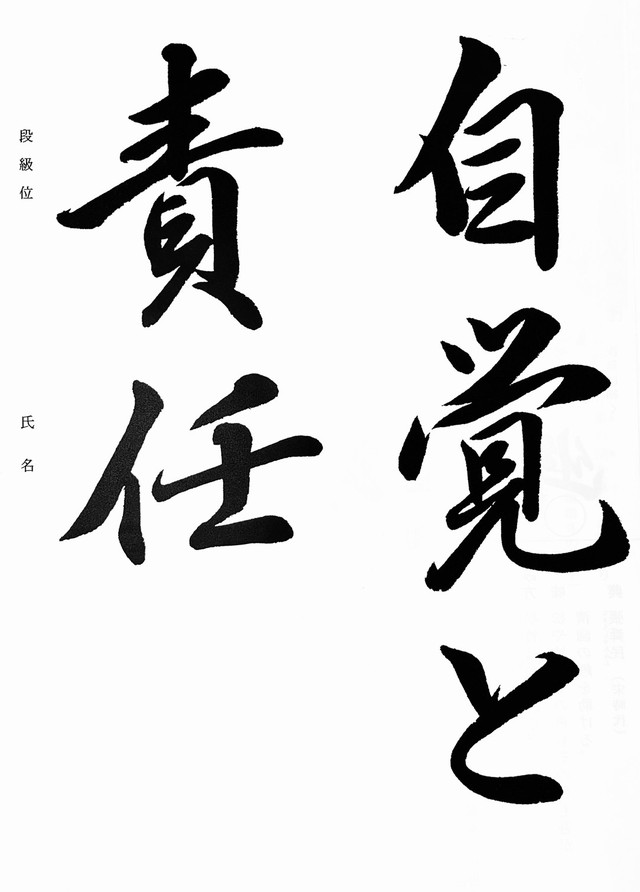 自覚と
責任
段級位
氏名